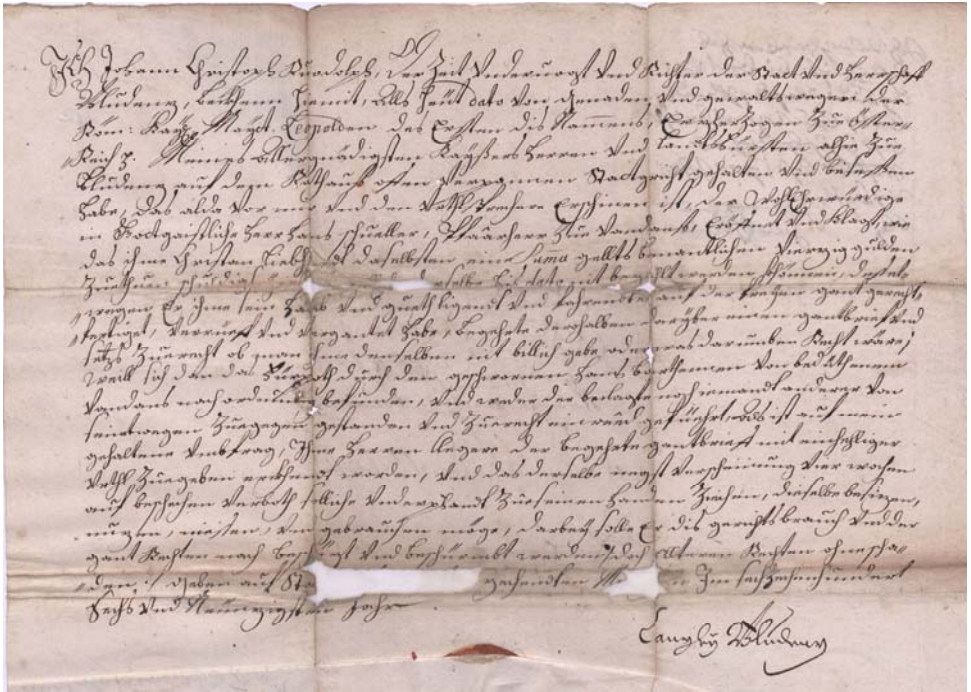 Ich Johann Christoph Ruodolph, der Zeit Undervogt und Richter der Statt und Herrschafft
Bludenz, Bekhenn hiemit, Alls heüt dato von Genaden und gewaltswegen der
Röm: Kay: Mayst: Leopolden des Ersten dis Nammens, Erzherzogen Zue Öster-
Reich p. Meines allergnädigsten Kayßers Herren und Landtsfürsten alhie Zue
Bludenz auf dem Rathauß offen verpannen Stattgricht gehalten und besessen
habe, das alda vor mir und den Urthlsprechern Erschinen ist, der Wohl Ehrwürdige
in Gott gaistliche Herr Hans Schueller, Pfaarherr Zue Vandanß, Eröffnet und klagt, wie
das ihme Christan daselbsten, eine Suma gellts benantlichen Vierzig gulden
Zuethuen schuldig bis dato nit bezahlt werden khönnen, destet-
wegen Er ihme sein Haus und gueth ligendt und fahrendte auf der freyen gant gerecht-
fertiget, verrüeft und vergantet habe, begehrte derhalben darüber einen gantbrief und
setzs Zuerecht ob man ihme denselben nit billich gebe, oder was darumben Recht wäre;
Weill sich dan das Fürpoth durch den geschwornen Hans Barthlomeen von
Vandans nach ordnung befunden, und weder der beclagte noch iemandt anderer von
seinetwegen Zuegegen gestanden und Zuerecht einred gefüehrt, Als ist auf mein
gehaltene Umbfrag, Ihme Herren Clegere der begehrte gantbrief mit einhelliger
Urthl Zuegeben erkhendt worden, und das derselbe negst verscheinung vier wochen
auf beschechen verboth solliche underpfandt Zue seinen handen Ziechen, dieselbe besizen,
nuzen, niessen, und gebrauchen möge, darbey solle Er dis gerichts brauch und der
gant Rechten nach beschüzt und beschürmbt werden, doch alteren Rechten ohne scha-
den. Geben auf Im sechzehenhundert
Sechs und Neünzigsten Jahr.
Canzley Bludenz